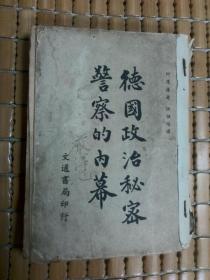 德國政治秘密
警察的內幕
文通書局印行